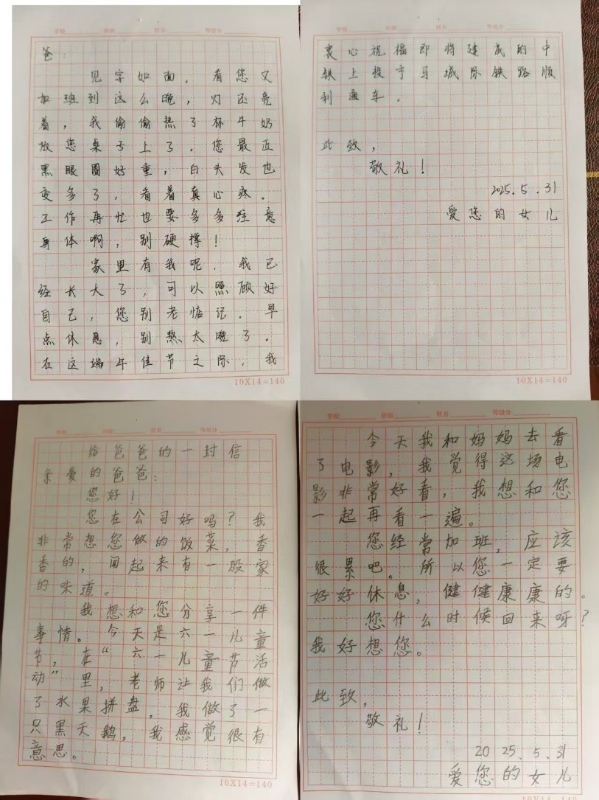 爸：
见字如面，看您又
加班到这么晚，灯还亮
着，我偷偷热了杯牛奶
放您桌子上了。您最近
黑眼圈好重，白头发也
变多了，看着真心疼。
工作再忙也要多多注意
身体啊，别硬撑！
家里有我呢，我已
经长大了，可以照顾好
自己，您别老惦记。早
点休息，别熬太晚了。
在这端午佳节之际，我
10X14=140
衷心祝福即将建成的中
铁上投宁马城际铁路顺
利通车。
此致，
敬礼！
2025.5.31
爱您的女儿
10X14=140
给爸爸的一封信
亲爱的爸爸：
您好！
您在公司好吗？我
非常想您做的饭菜，香
香的，闻起来有一股家
的味道。
我想和您分享一件
事情。今天是六一儿童
节，在“六一儿童节活
动”里，老师让我们做
了水果拼盘，我做了一
只黑天鹅，我感觉很有
意思。
10X14=140
今天我和妈妈去看
了电影，我觉得这场电
影非常好看，我想和您
一起再看一遍。
您经常加班，应该
很累吧。所以您一定要
好好休息，健健康康的。
您什么时候回来呀？
我好想您。
此致，
敬礼！
2025.5.31
爱您的女儿
10X14=140